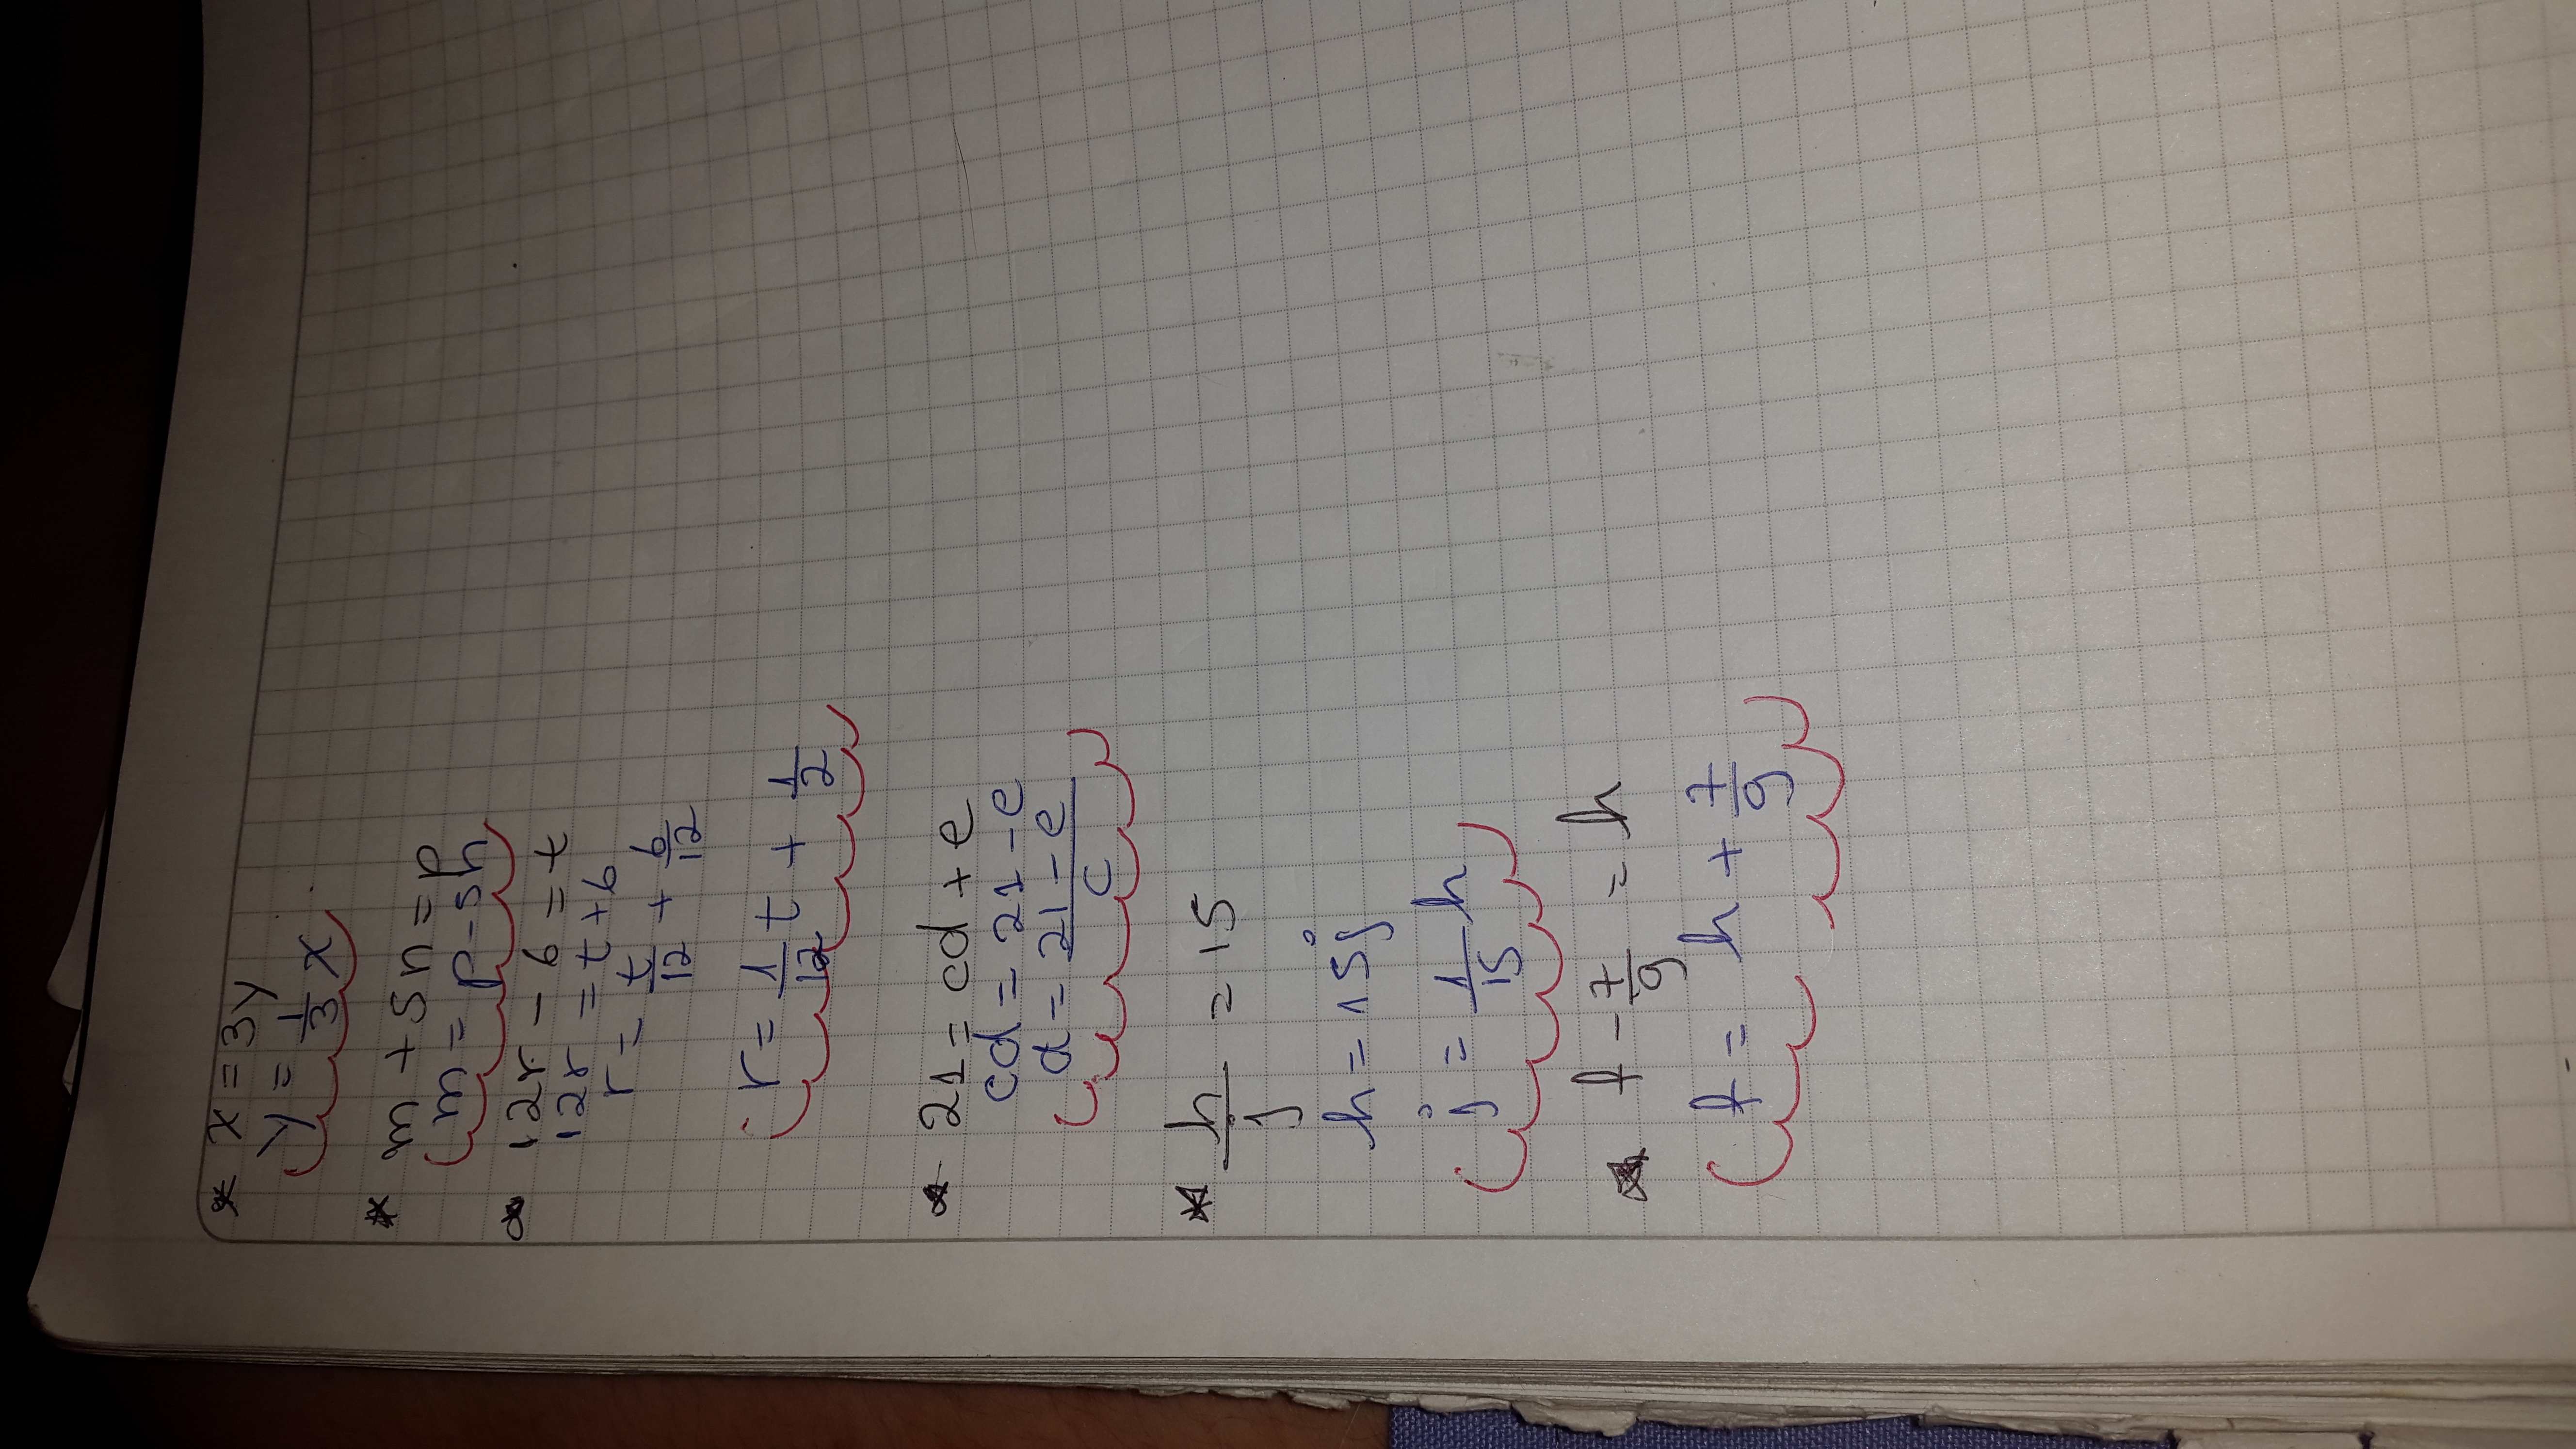 * x = 3y
y = 1/3 x
* m + 5n = p
m = p - 5n
* 12r - 6 = t
12r = t + 6
r = t/12 + 6/12
r = 1/12 t + 1/2
* 21 = cd + e
cd = 21 - e
d = 21 - e / c
* h/j = 15
h = 15j
j = 1/15 h
* f - 7/9 = h
f = h + 7/9